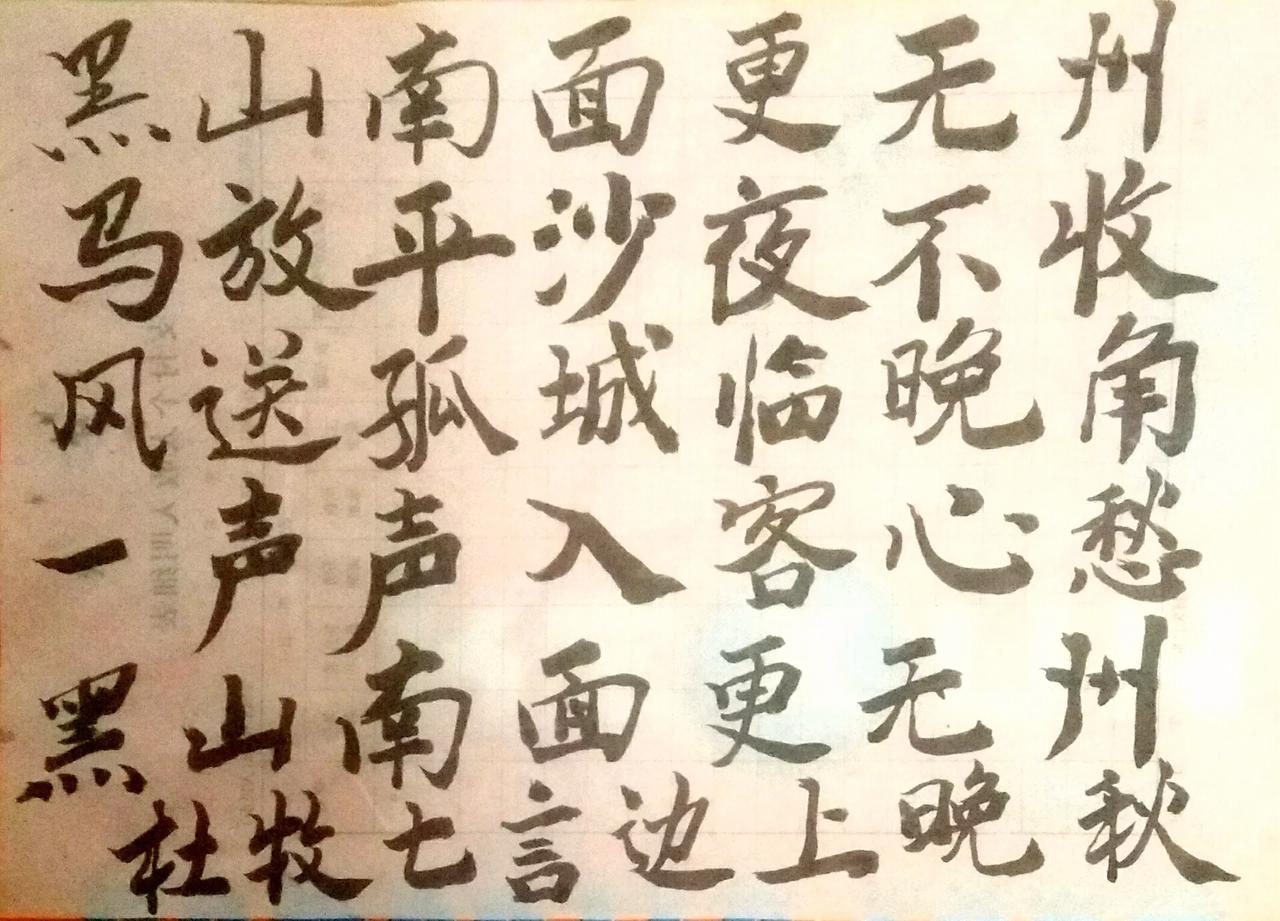 黑山南面更无州
马放平沙夜不收
风送孤城临晚角
一声声入客心愁
黑山南面更无州
杜牧七言边上晚秋